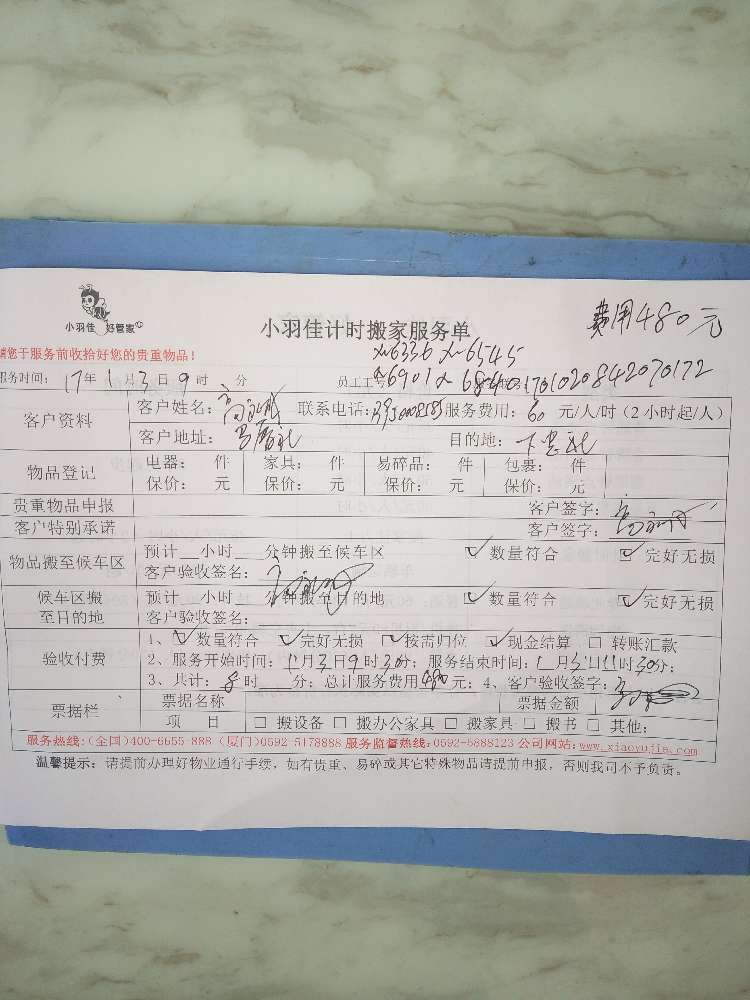 小羽佳 好管家
小羽佳计时搬家服务单
费用480元
请您于服务前收拾好您的贵重物品！
x6336 x6545
服务时间：17年1月3日9时 分 员工工号 x6901 x6840 1701020842070172
客户资料
客户姓名： 联系电话： 服务费用：60元/人/时（2小时起/人）
客户地址： 目的地：
物品登记
电器： 件 家具： 件 易碎品： 件 包裹： 件
保价： 元 保价： 元 保价： 元 保价： 元
贵重物品申报 客户签字：
客户特别承诺 客户签字：
物品搬至候车区
预计__小时__分钟搬至候车区 ☑数量符合 ☑完好无损
客户验收签名：
候车区搬至目的地
预计__小时__分钟搬至目的地 ☑数量符合 ☑完好无损
客户验收签名：
验收付费
1、☑数量符合 ☑完好无损 ☑按需归位 ☑现金结算 □ 转账汇款
2、服务开始时间：1月3日9时30分；服务结束时间：1月3日11时30分；
3、共计：8时__分；总计服务费用480元；4、客户验收签字：
票据栏
票据名称 票据金额
项 目 □ 搬设备 □ 搬办公家具 □ 搬家具 □ 搬书 □ 其他：
服务热线：(全国)400-6655-888 (厦门)0592-5178888 服务监督热线：0592-5688123 公司网站：www.xiaoyujia.com
温馨提示：请提前办理好物业通行手续，如有贵重、易碎或其它特殊物品请提前申报，否则我司不予负责。